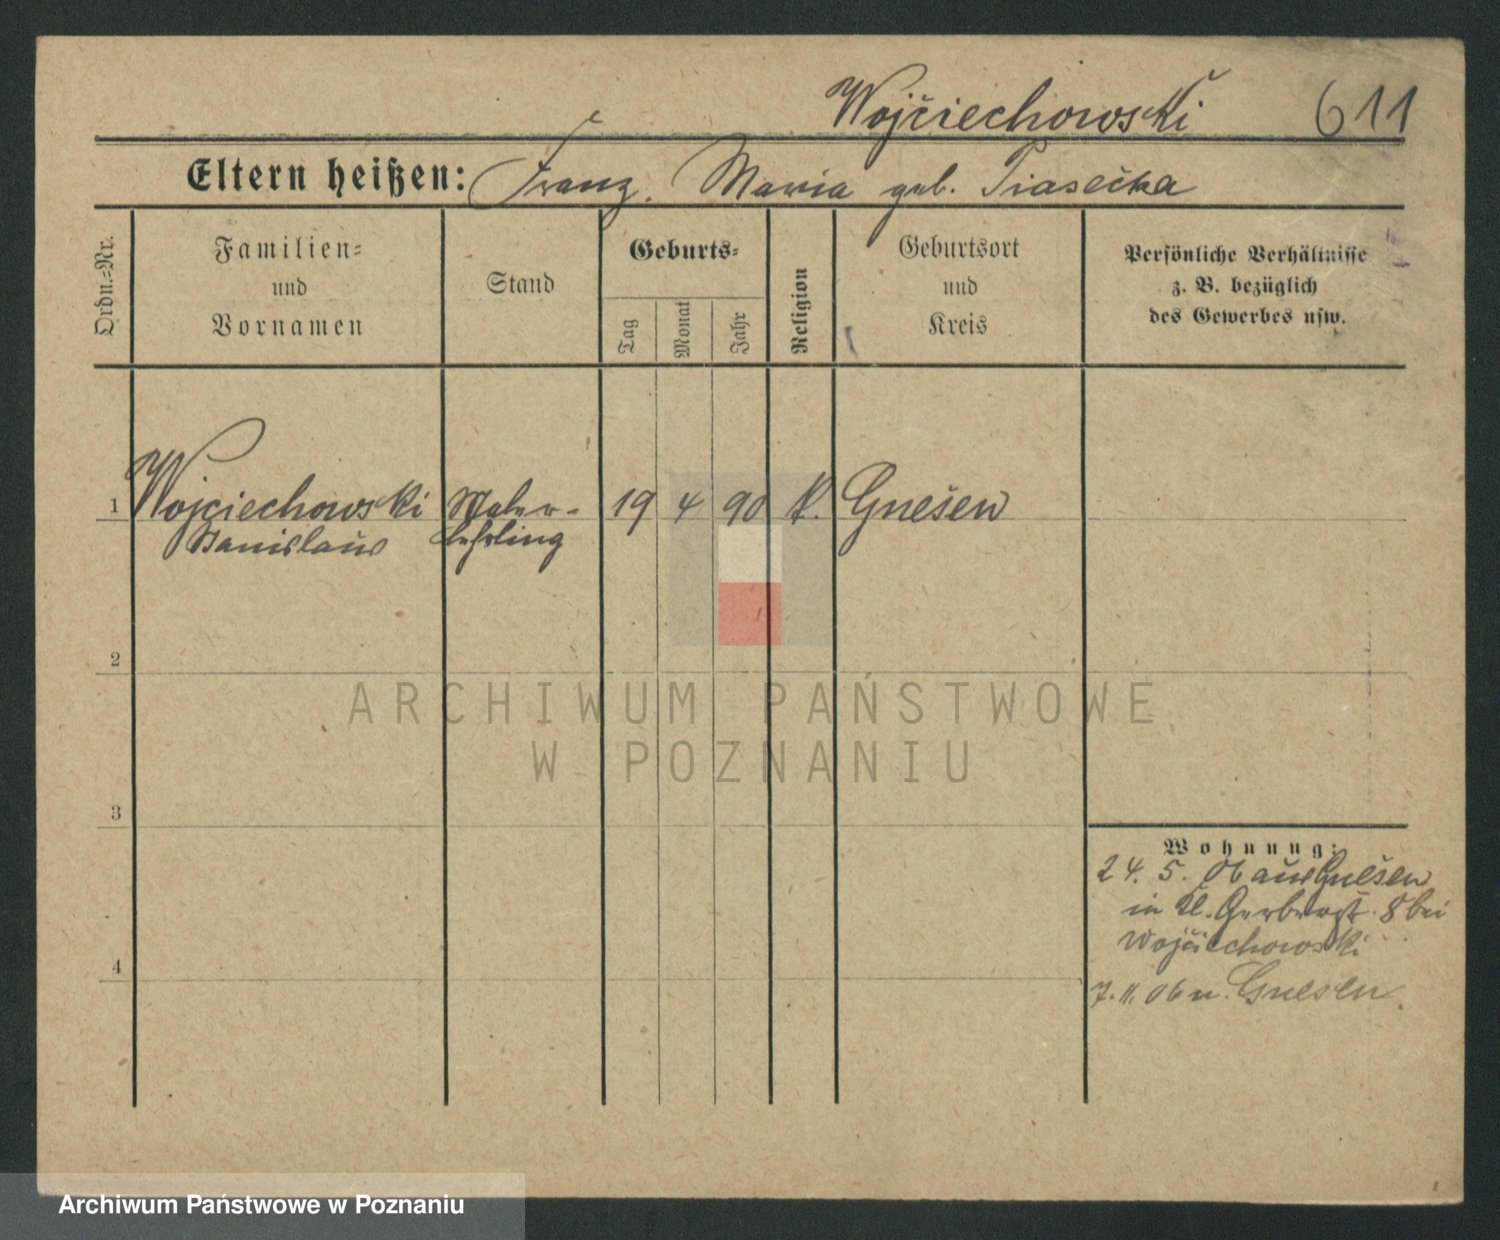 Wojciechowski 611
Eltern heißen: Franz. Maria geb. Piasecka
Ordn.=Nr.
Familien=
und
Vornamen
Stand
Geburts=
Tag
Monat
Jahr
Religion
Geburtsort
und
Kreis
Persönliche Verhältnisse
z. B. bezüglich
des Gewerbes usw.
1 Wojciechowski Maler- 19 4 90 k. Gnesen
Stanislaus lehrling
2
ARCHIWUM PAŃSTWOWE
W POZNANIU
3
Wohnung:
24. 5. 06 aus Gnesen
in Kl. Gerberst. 8 bei
Wojciechowski
4
7. 11. 06 n. Gnesen.
Archiwum Państwowe w Poznaniu